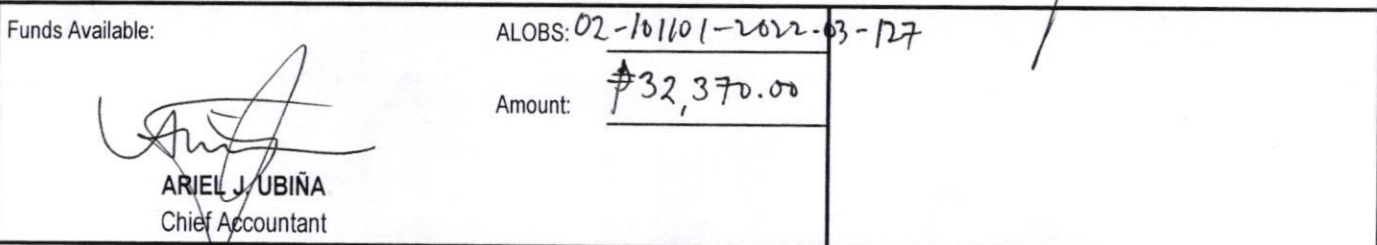 Funds Available:
ALOBS: 02-101101-2022-03-127
Amount: ₱32,370.00
ARIEL J. UBIÑA
Chief Accountant